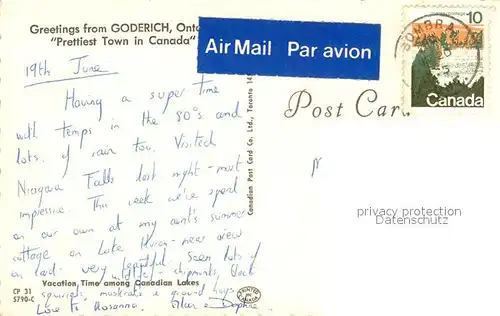 Greetings from GODERICH, Onta
"Prettiest Town in Canada"
Air Mail Par avion
10
SOMBRA
Canada
Post Card
19th June
Having a super time
with temps in the 80's and
lots of rain too. Visited
Niagara Falls last night - most
impressive. This week we've spent
on our own at my aunt's summer
cottage on Lake Huron - near view
on card - very beautiful. Seen lots of
wildlife - chipmunks, black
squirrels, muskrats & ground hogs.
Love to Rosanna. & Daphne
Canadian Post Card Co. Ltd., Toronto 14
privacy protection
Datenschutz
CP 31
5790-C
Vacation Time among Canadian Lakes
PRINTED IN CANADA